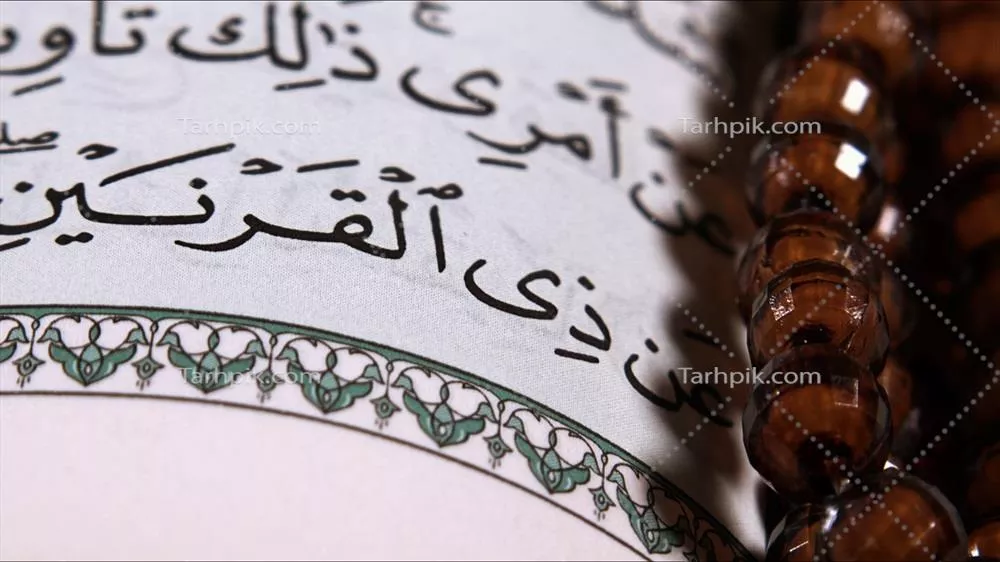 عَنْ أَمْرِى ذَٰلِكَ
عَن ذِى ٱلْقَرْنَيْنِ
Tarhpik.com Tarhpik.com
Tarhpik.com Tarhpik.com